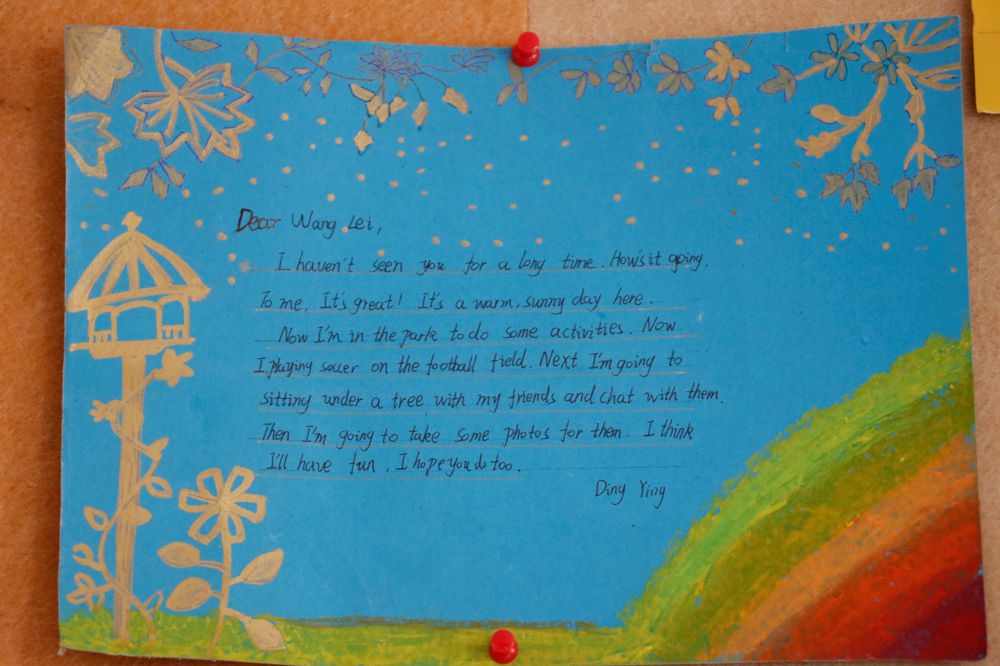 Dear Wang Lei,
I haven't seen you for a long time. How's it going.
To me, It's great! It's a warm, sunny day here.
Now I'm in the park to do some activities. Now
I playing soccer on the football field. Next I'm going to
sitting under a tree with my friends and chat with them.
Then I'm going to take some photos for them. I think
I'll have fun, I hope you do too.
Ding Ying